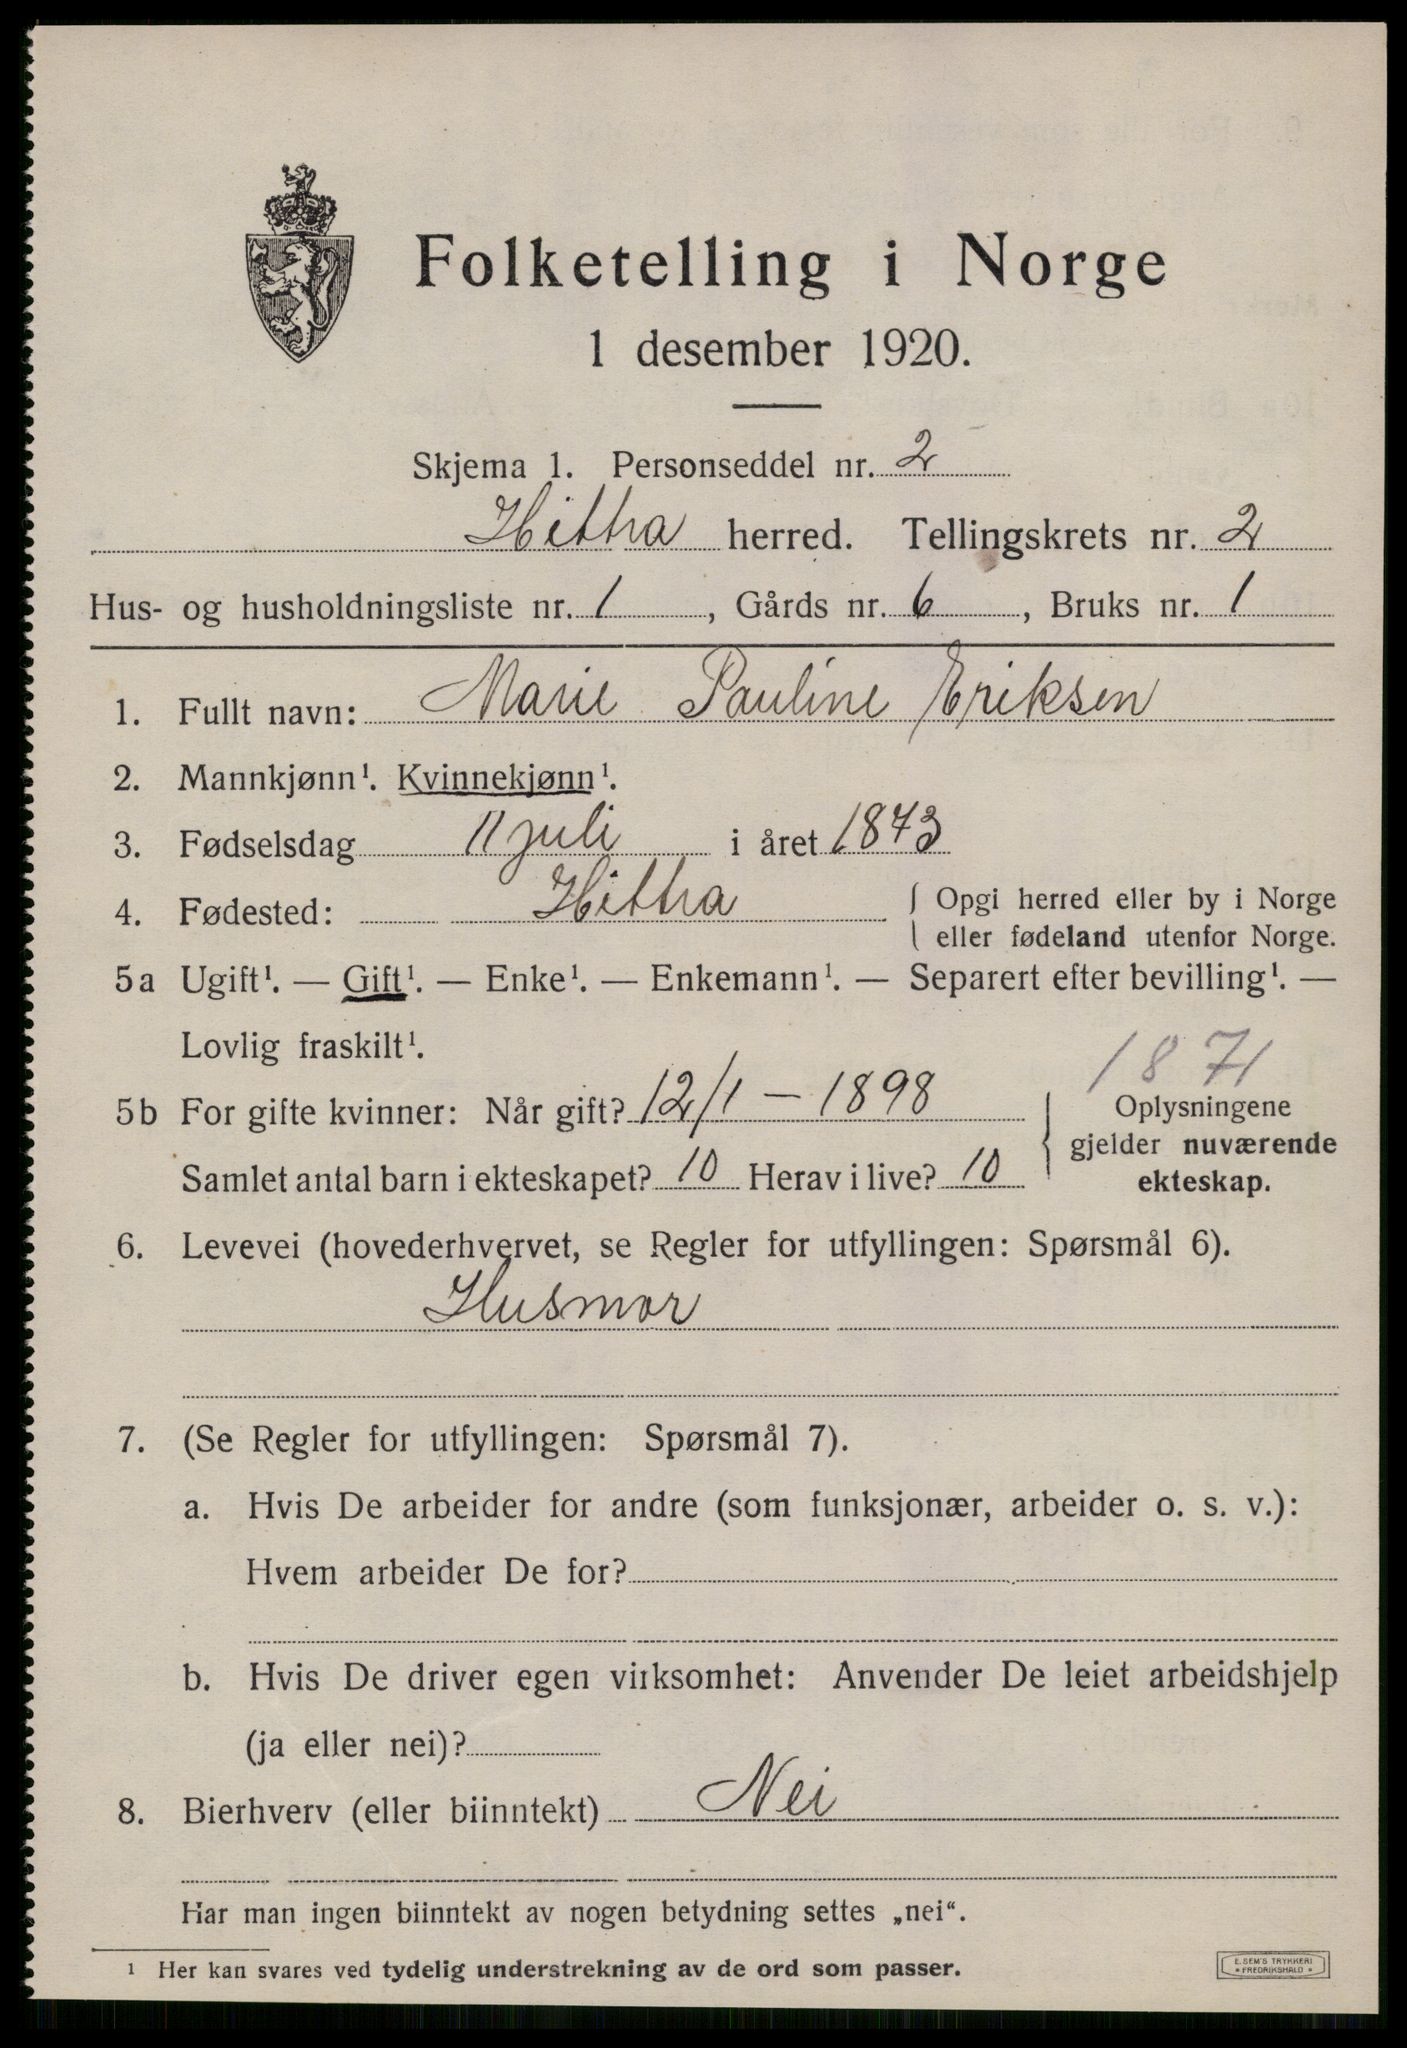 Folketelling i Norge
1 desember 1920.
Skjema 1. Personseddel nr. 2
Hittra herred. Tellingskrets nr. 2
Hus- og husholdningsliste nr. 1, Gårds nr. 6, Bruks nr. 1
1. Fullt navn: Marie Pauline Eriksen
2. Mannkjønn¹. Kvinnekjønn¹.
3. Fødselsdag 11 juli i året 1873
4. Fødested: Hittra { Opgi herred eller by i Norge
eller fødeland utenfor Norge.
5a Ugift¹. — Gift¹. — Enke¹. — Enkemann¹. — Separert efter bevilling¹. —
Lovlig fraskilt¹.
1871
5b For gifte kvinner: Når gift? 12/1 — 1898
Samlet antal barn i ekteskapet? 10 Herav i live? 10
Oplysningene
gjelder nuværende
ekteskap.
6. Levevei (hovederhvervet, se Regler for utfyllingen: Spørsmål 6).
Husmor
7. (Se Regler for utfyllingen: Spørsmål 7).
a. Hvis De arbeider for andre (som funksjonær, arbeider o. s. v.):
Hvem arbeider De for?
b. Hvis De driver egen virksomhet: Anvender De leiet arbeidshjelp
(ja eller nei)?
8. Bierhverv (eller biinntekt) Nei
Har man ingen biinntekt av nogen betydning settes „nei“.
¹ Her kan svares ved tydelig understrekning av de ord som passer.
E. SEM'S TRYKKERI
* FREDRIKSHALD *